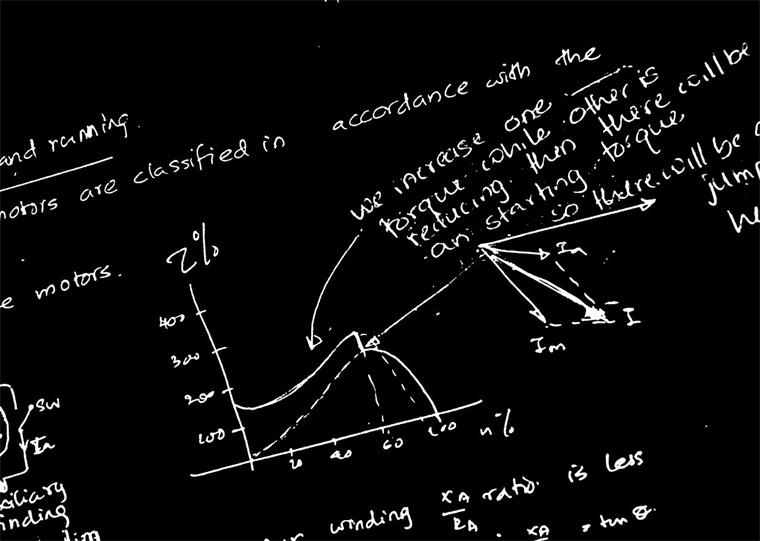 and running.
motors are classified in accordance with the
we increase one
torque while other is
reducing then there will be
an starting torque
so there will be
jump
he
e motors.
τ%
400
300
200
100
20
40
60
100
n%
Ia
I
Im
SW
Ia
xiliary
inding
winding XA/RA ratio is less
XA = tan θ